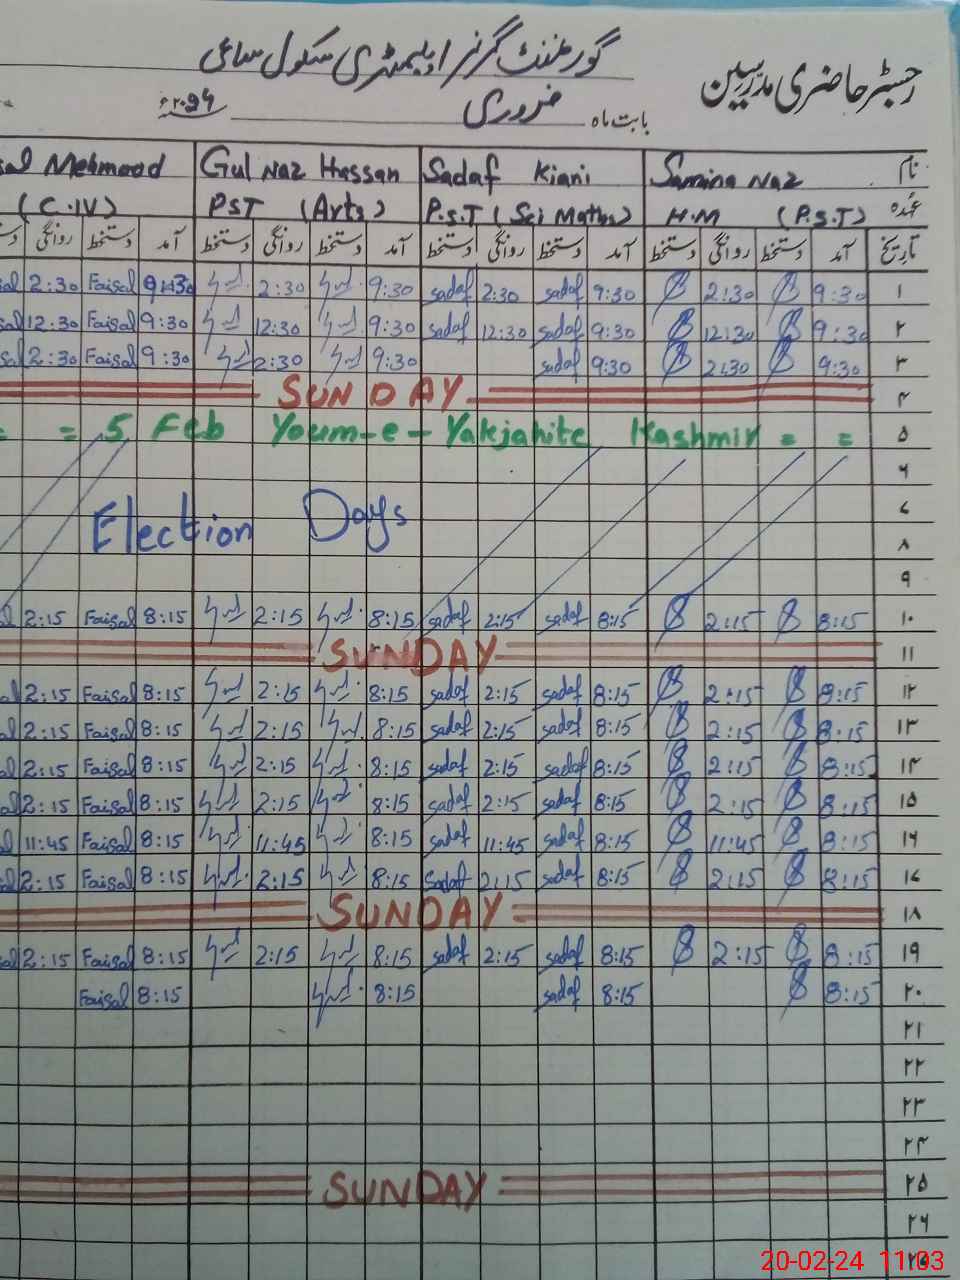 رجسٹر حاضری مدرسین گورنمنٹ گرلز ایلیمنٹری سکول
بابت ماہ فروری ۲۰۲۴ء
نام Samina Naz Sadaf Kiani Gul Naz Hassan Mehmood
عہدہ H.M (P.S.T) P.S.T (Sci Maths) PST (Arts) (C.IV)
تاریخ آمد دستخط روانگی دستخط آمد دستخط روانگی دستخط آمد دستخط روانگی دستخط آمد دستخط روانگی
۱ 9:30 2:30 9:30 sadaf 2:30 sadaf 9:30 2:30 9:30 Faisal 2:30
۲ 9:30 12:30 9:30 sadaf 12:30 sadaf 9:30 12:30 9:30 Faisal 12:30
۳ 9:30 2:30 9:30 sadaf 9:30 2:30 9:30 Faisal 2:30
۴ SUNDAY
۵ = 5 Feb Youm-e-Yakjahite Kashmir = =
۶
۷ Election Days
۸
۹
۱۰ 8:15 2:15 8:15 sadaf 2:15 sadaf 8:15 2:15 8:15 Faisal 2:15
۱۱ SUNDAY
۱۲ 8:15 2:15 8:15 sadaf 2:15 sadaf 8:15 2:15 8:15 Faisal 2:15
۱۳ 8:15 2:15 8:15 sadaf 2:15 sadaf 8:15 2:15 8:15 Faisal 2:15
۱۴ 8:15 2:15 8:15 sadaf 2:15 sadaf 8:15 2:15 8:15 Faisal 2:15
۱۵ 8:15 2:15 8:15 sadaf 2:15 sadaf 8:15 2:15 8:15 Faisal 2:15
۱۶ 8:15 11:45 8:15 sadaf 11:45 sadaf 8:15 11:45 8:15 Faisal 11:45
۱۷ 8:15 2:15 8:15 sadaf 2:15 Sadaf 8:15 2:15 8:15 Faisal 2:15
۱۸ SUNDAY
۱۹ 8:15 2:15 8:15 sadaf 2:15 sadaf 8:15 2:15 8:15 Faisal 2:15
۲۰ 8:15 8:15 sadaf 8:15 8:15 Faisal
۲۱
۲۲
۲۳
۲۴
۲۵ SUNDAY
۲۶
20-02-24 11:03